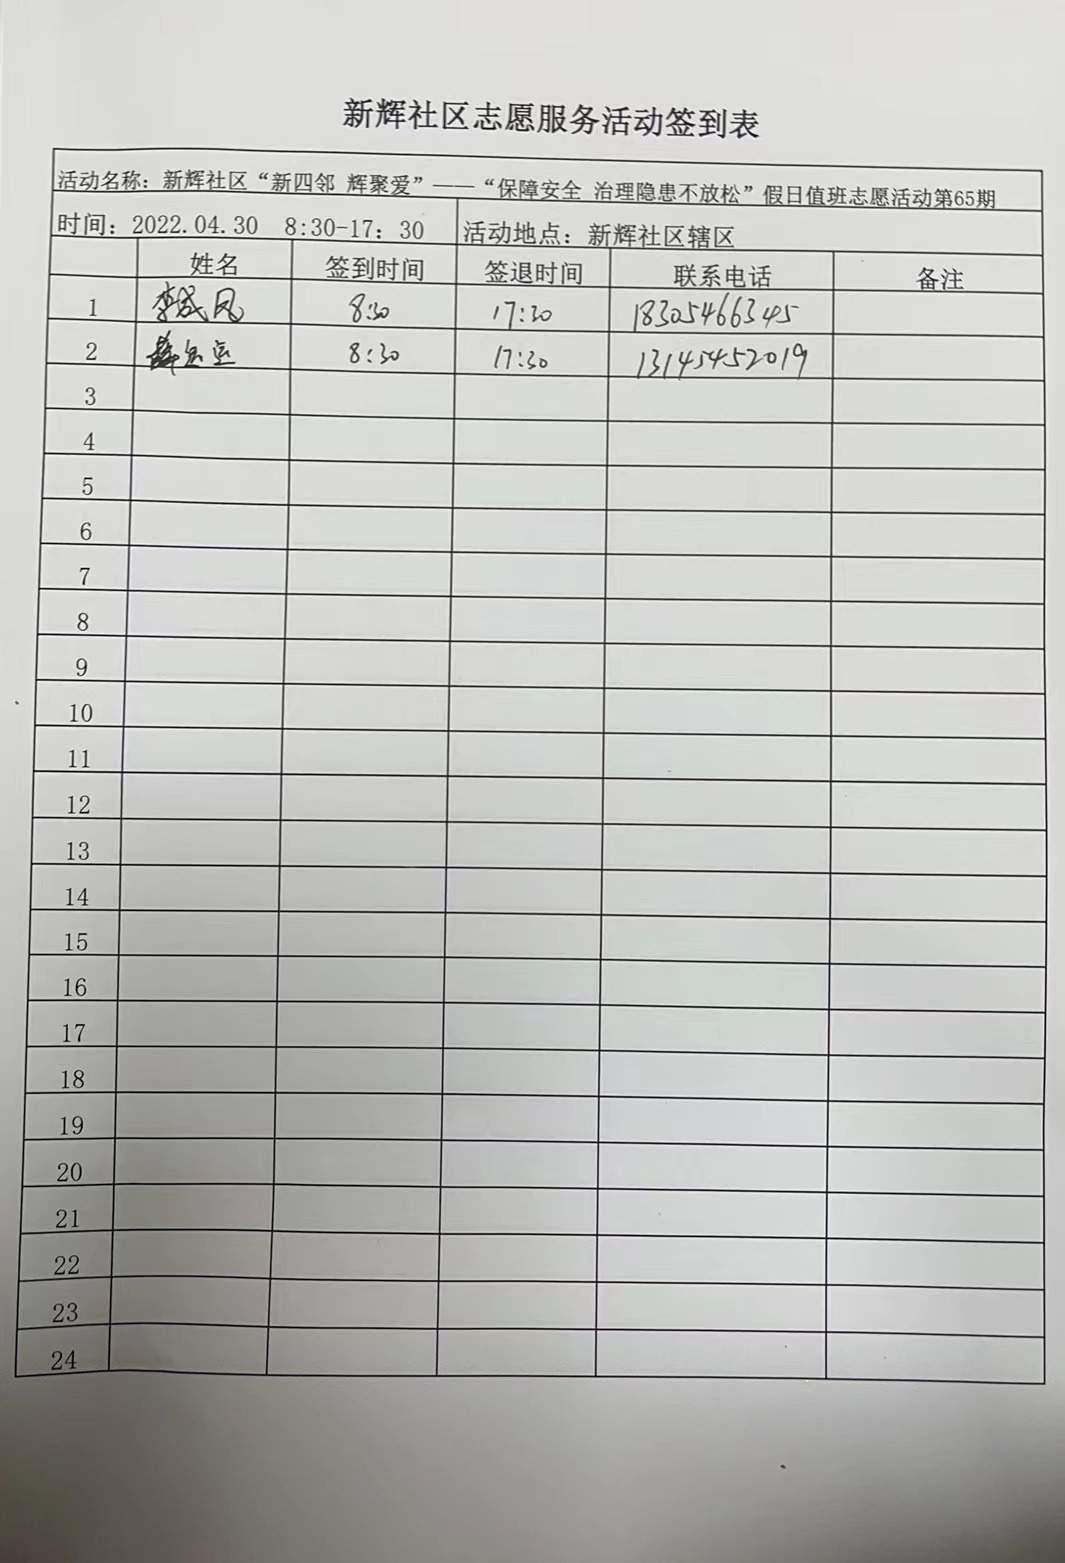 新辉社区志愿服务活动签到表
活动名称：新辉社区“新四邻 辉聚爱”——“保障安全 治理隐患不放松”假日值班志愿活动第65期
时间：2022.04.30 8:30-17：30 活动地点：新辉社区辖区
姓名 签到时间 签退时间 联系电话 备注
1 李成凤 8:30 17:30 18305466345
2 8:30 17:30 13145452019
3
4
5
6
7
8
9
10
11
12
13
14
15
16
17
18
19
20
21
22
23
24